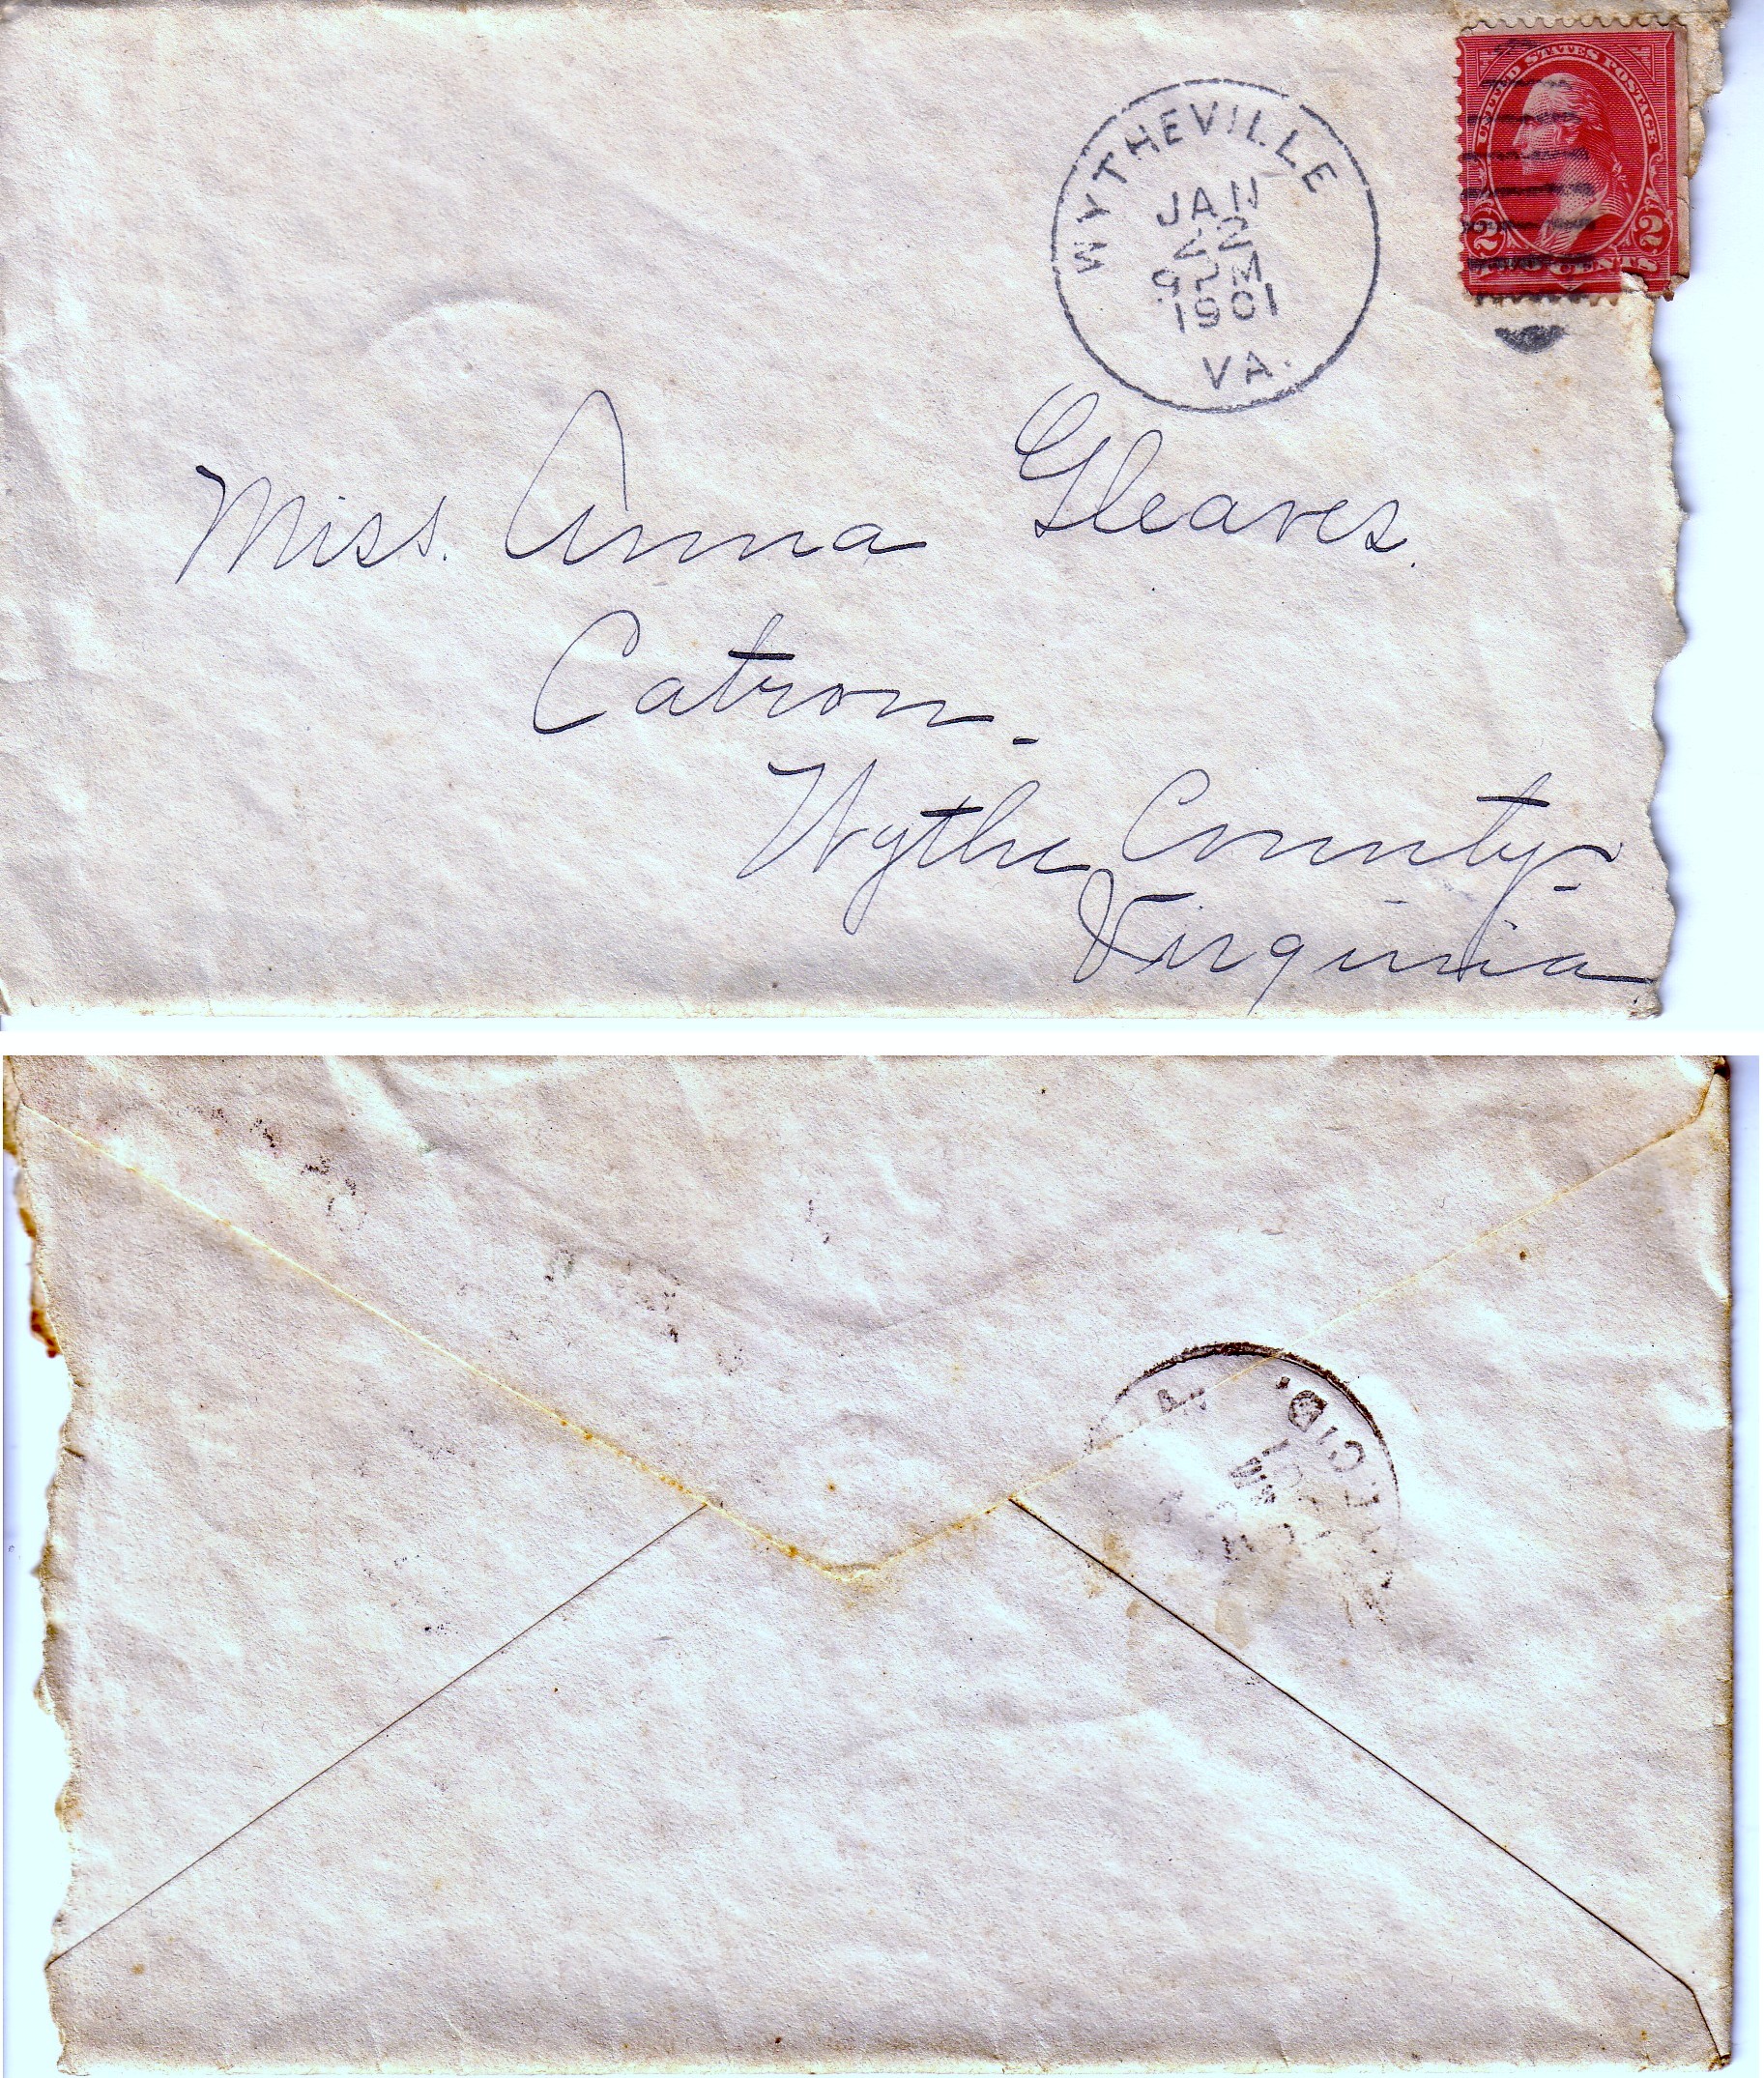 UNITED STATES POSTAGE
2 2
CENTS
WYTHEVILLE
JAN
22
9 PM
1901
VA.
Miss. Anna Gleaves.
Catron.
Wythe County.
Virginia